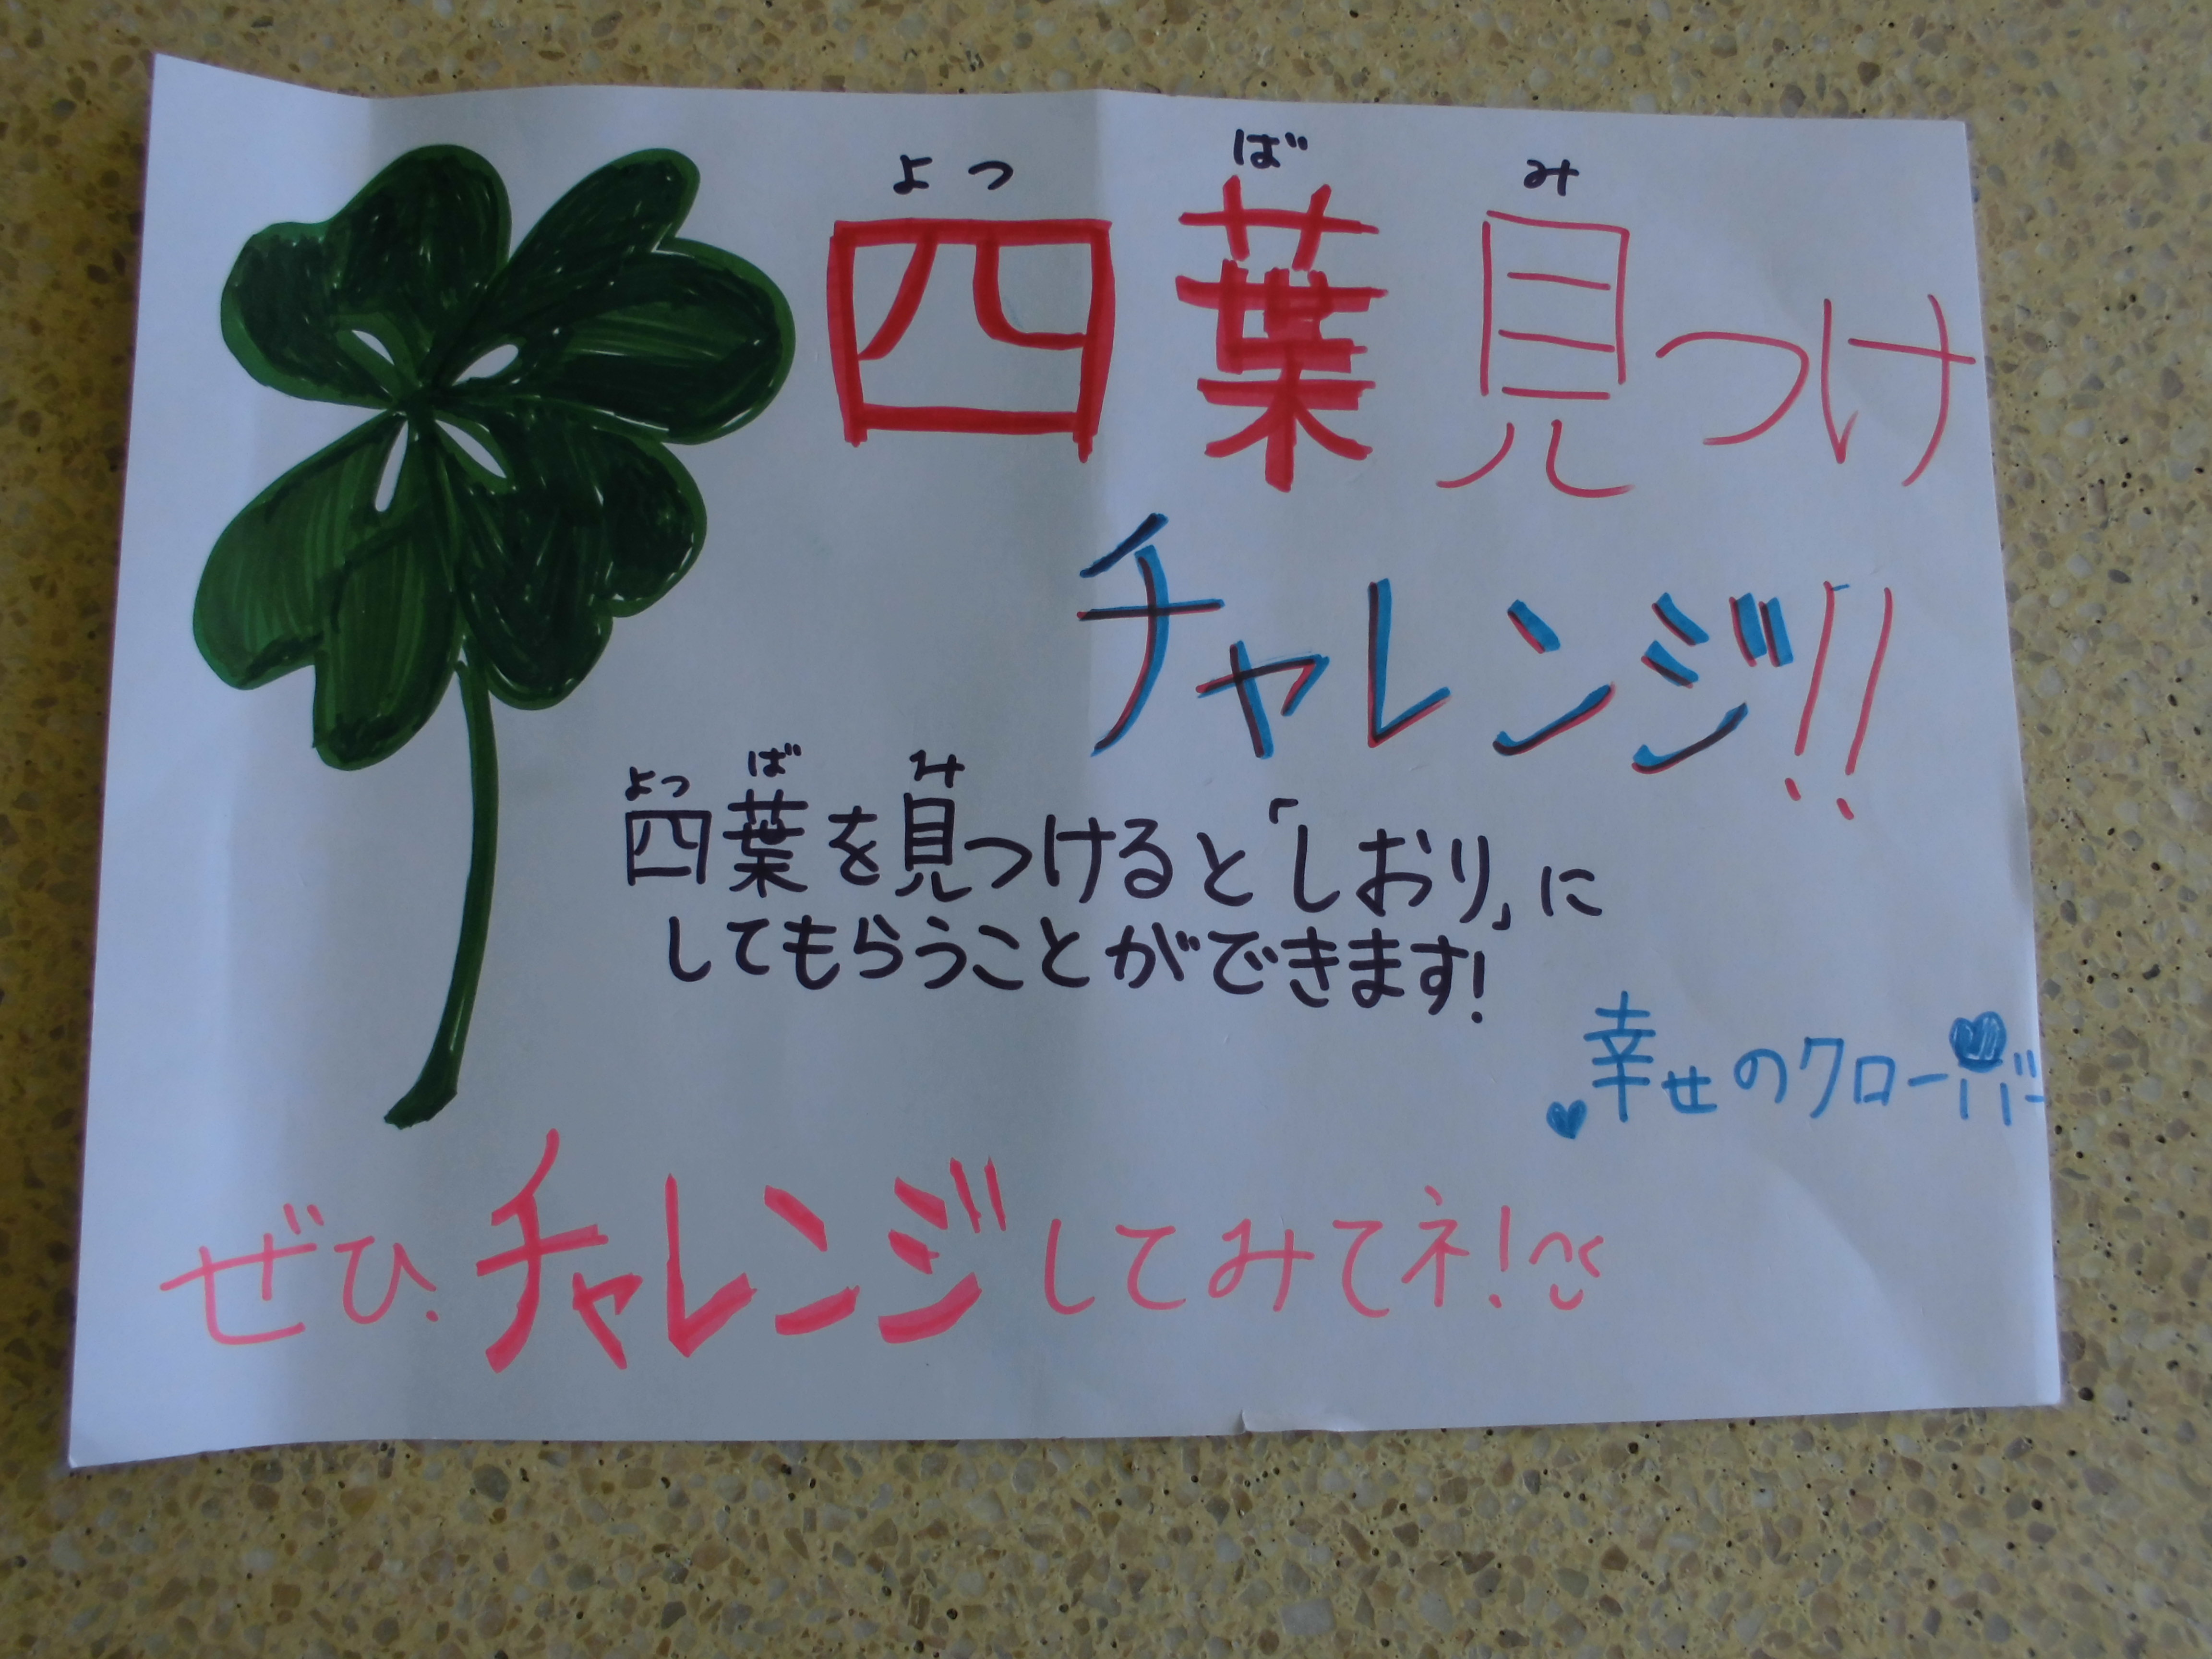 よつ ば み
四葉見つけ
チャレンジ!!
よつ ば み
四葉を見つけると「しおり」に
してもらうことができます!
幸せのクローバー
ぜひ、チャレンジしてみてネ!